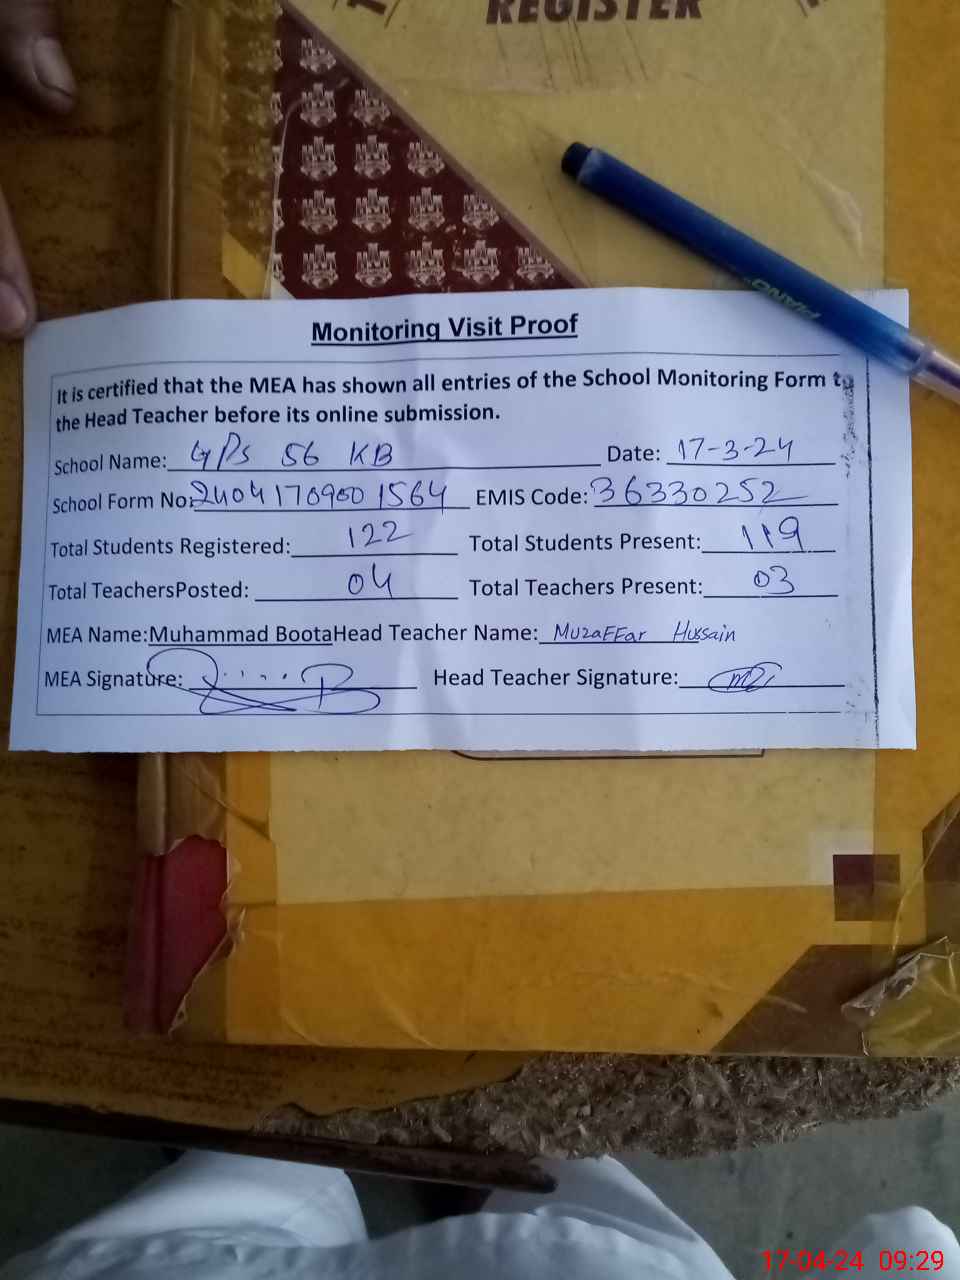 REGISTER
PIANO
Monitoring Visit Proof
It is certified that the MEA has shown all entries of the School Monitoring Form t
the Head Teacher before its online submission.
School Name: GPS 56 KB Date: 17-3-24
School Form No: 24041709001564 EMIS Code: 36330252
Total Students Registered: 122 Total Students Present: 119
Total TeachersPosted: 04 Total Teachers Present: 03
MEA Name: Muhammad Boota Head Teacher Name: Muzaffar Hussain
MEA Signature: Head Teacher Signature:
17-04-24 09:29